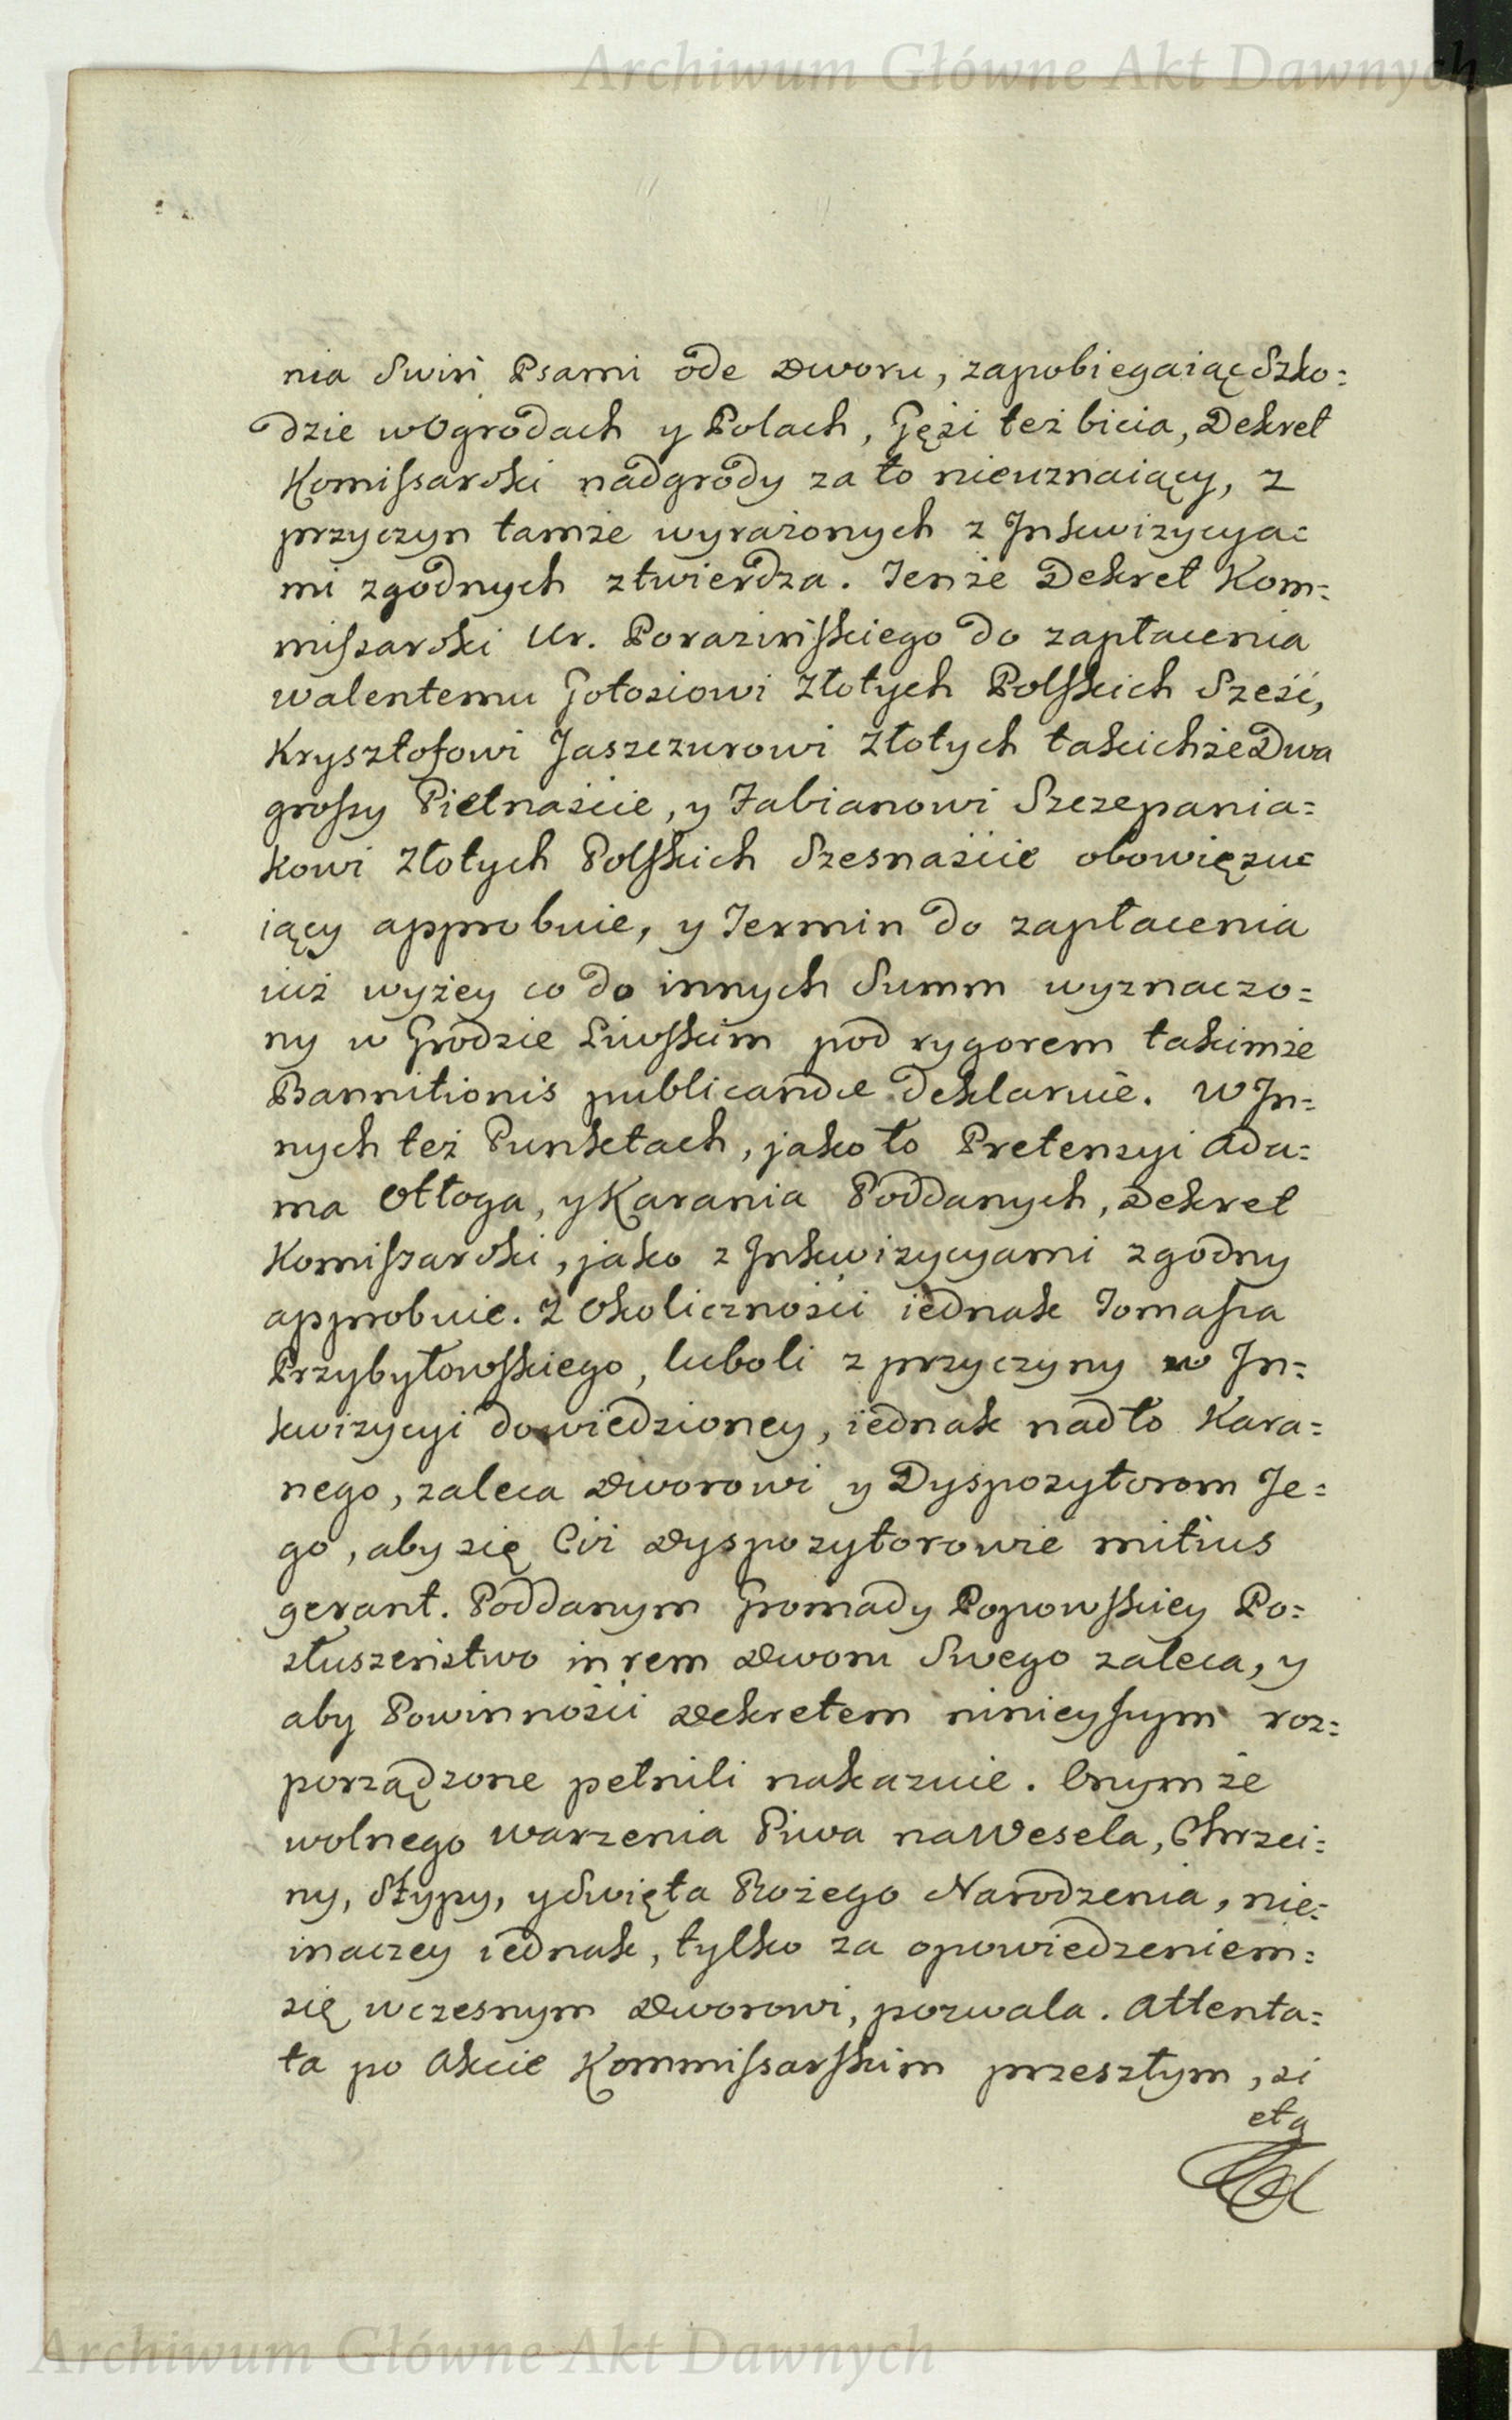 Archiwum Główne Akt Dawnych
nia Swiń Psami ode Dworu, zapobiegaiąc Szko=
dzie w Ogrodach y Polach, Gęśi też bicia, Dekret
Komissarski nadgrody za to nieuznaiący, z
przyczyn tamże wyrażonych z Inkwizycya=
mi zgodnych ztwierdza. Tenże Dekret Kom=
missarski Ur. Porazińskiego do zapłacenia
Walentemu Gołosiowi Złotych Polskich Sześć,
Krysztofowi Jaszczurowi Złotych takichże Dwa
groszy Pietnaście, y Fabianowi Szczepania=
kowi Złotych Polskich Szesnaście obowięzu=
iący approbuie, y Termin do zapłacenia
iuż wyżey co do innych Summ wyznaczo=
ny w Grodzie Liwskim pod rygorem takimże
Bannitionis publicandæ deklaruie. W In=
nych też Punktach, jako to Pretensyi Ada=
ma Ołtoga, y Karania Poddanych, Dekret
Komissarski, jako z Inkwizycyami zgodny
approbuie. Z Okoliczności iednak Tomasza
Przybyłowskiego, luboli z przyczyny w In=
kwizycyi dowiedzioney, iednak nadto Kara=
nego, zaleca Dworowi y Dyspozytorom Je=
go, aby się Ciż Dyspozytorowie mitius
gerant. Poddanym Gromady Popowskiey Po=
słuszeństwo in rem Dworu Swego zaleca, y
aby Powinności Dekretem ninieyszym roz=
porządzone pełnili nakazuie. Onymże
wolnego warzenia Piwa na Wesela, Chrzci=
ny, Stypy, y Swięta Bożego Narodzenia, nie=
inaczey iednak, tylko za opowiedzeniem=
się wczesnym Dworowi, pozwala. Attenta=
ta po Akcie Kommissarskim przeszłym, zi
Archiwum Główne Akt Dawnych